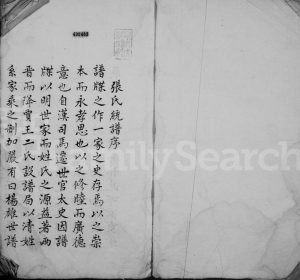 張氏統譜序
譜牒之作一家之史存焉以之崇
本而永孝思也以之修睦而廣德
意也自漢司馬遷世官太史因譜
牒以明世家而姓氏之源益著兩
晋而降賈王二氏設譜局以清姓
系家乘之制加嚴有曰楊雄世譜
FamilySearch